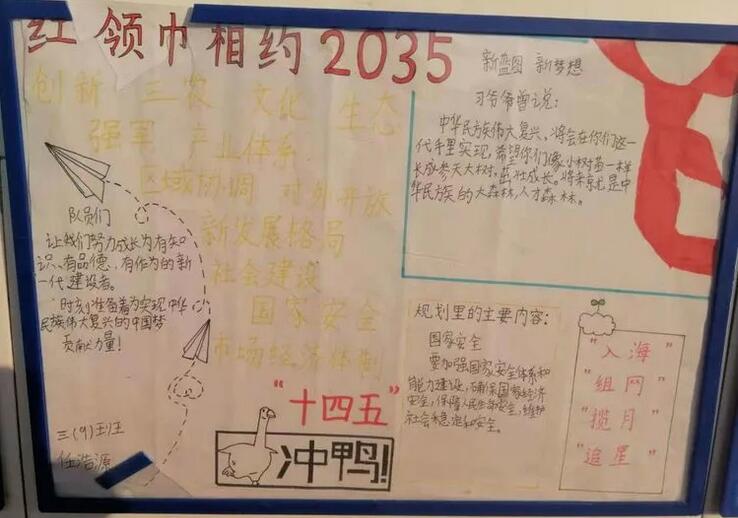 红领巾相约2035
新蓝图 新梦想
创新 三农 文化 生态
强军 产业体系
区域协调 对外开放
新发展格局
社会建设
国家安全
市场经济体制
习爷爷曾说:
中华民族伟大复兴、将会在你们这一
代手里实现,希望你们像小树苗一样
长成参天大树,茁壮成长。将来就是中
华民族的大森林,人才森林。
队员们
让我们努力成长为有知
识、有品德、有作为的新
一代建设者。
时刻准备着为实现中华
民族伟大复兴的中国梦
贡献力量!
规划里的主要内容:
国家安全
要加强国家安全体系和
能力建设,确保国家经济
安全,保障人民生命安全,维护
社会稳定和安全。
"入海"
"组网"
"揽月"
"追星"
"十四五"
冲鸭!
三(9)班
任浩源